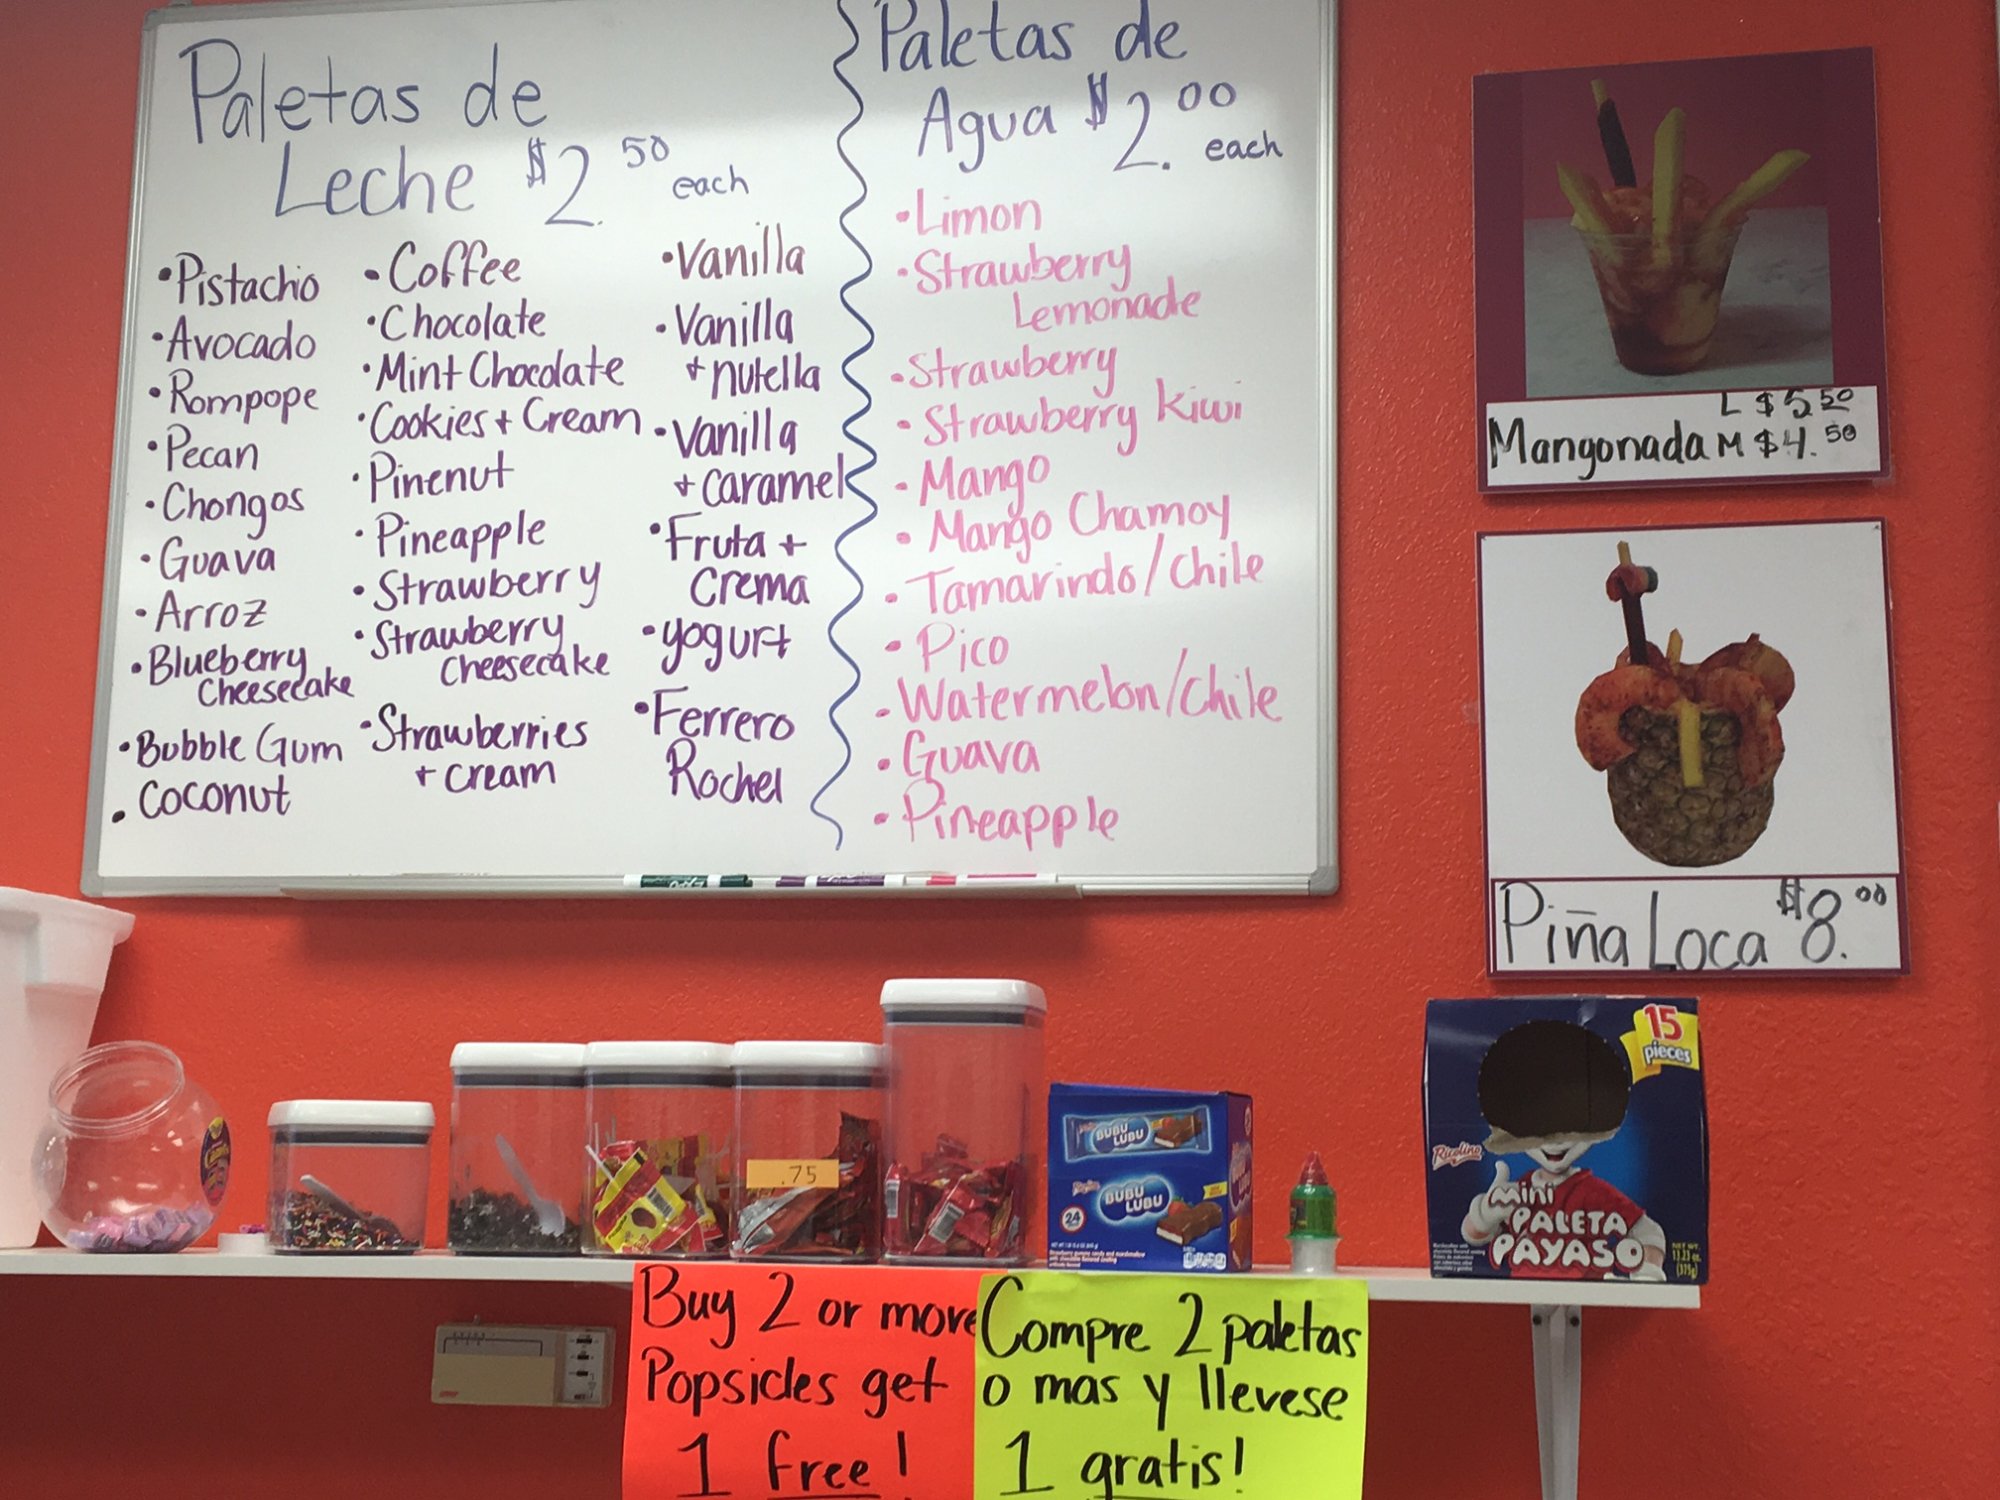 Paletas de
Leche $2.50 each
• Pistachio
• Avocado
• Rompope
• Pecan
• Chongos
• Guava
• Arroz
• Blueberry
Cheesecake
• Bubble Gum
• Coconut
• Coffee
• Chocolate
• Mint Chocolate
• Cookies + Cream
• Pinenut
• Pineapple
• Strawberry
• Strawberry
Cheesecake
• Strawberries
+ cream
• Vanilla
• Vanilla
+ nutella
• Vanilla
+ caramel
• Fruta +
Crema
• yogurt
• Ferrero
Rochel
Paletas de
Agua $2.00 each
• Limon
• Strawberry
Lemonade
• Strawberry
• Strawberry kiwi
• Mango
• Mango Chamoy
• Tamarindo/Chile
• Pico
• Watermelon/Chile
• Guava
• Pineapple
L $5.50
Mangonada M $4.50
Piña Loca $8.00
.75
BUBU
LUBU
BUBU
LUBU
24
15
pieces
Ricolino
mini
PALETA
PAYASO
NET WT.
13.23 oz.
(375g)
Buy 2 or more
Popsicles get
1 free!
Compre 2 paletas
o mas y llevese
1 gratis!